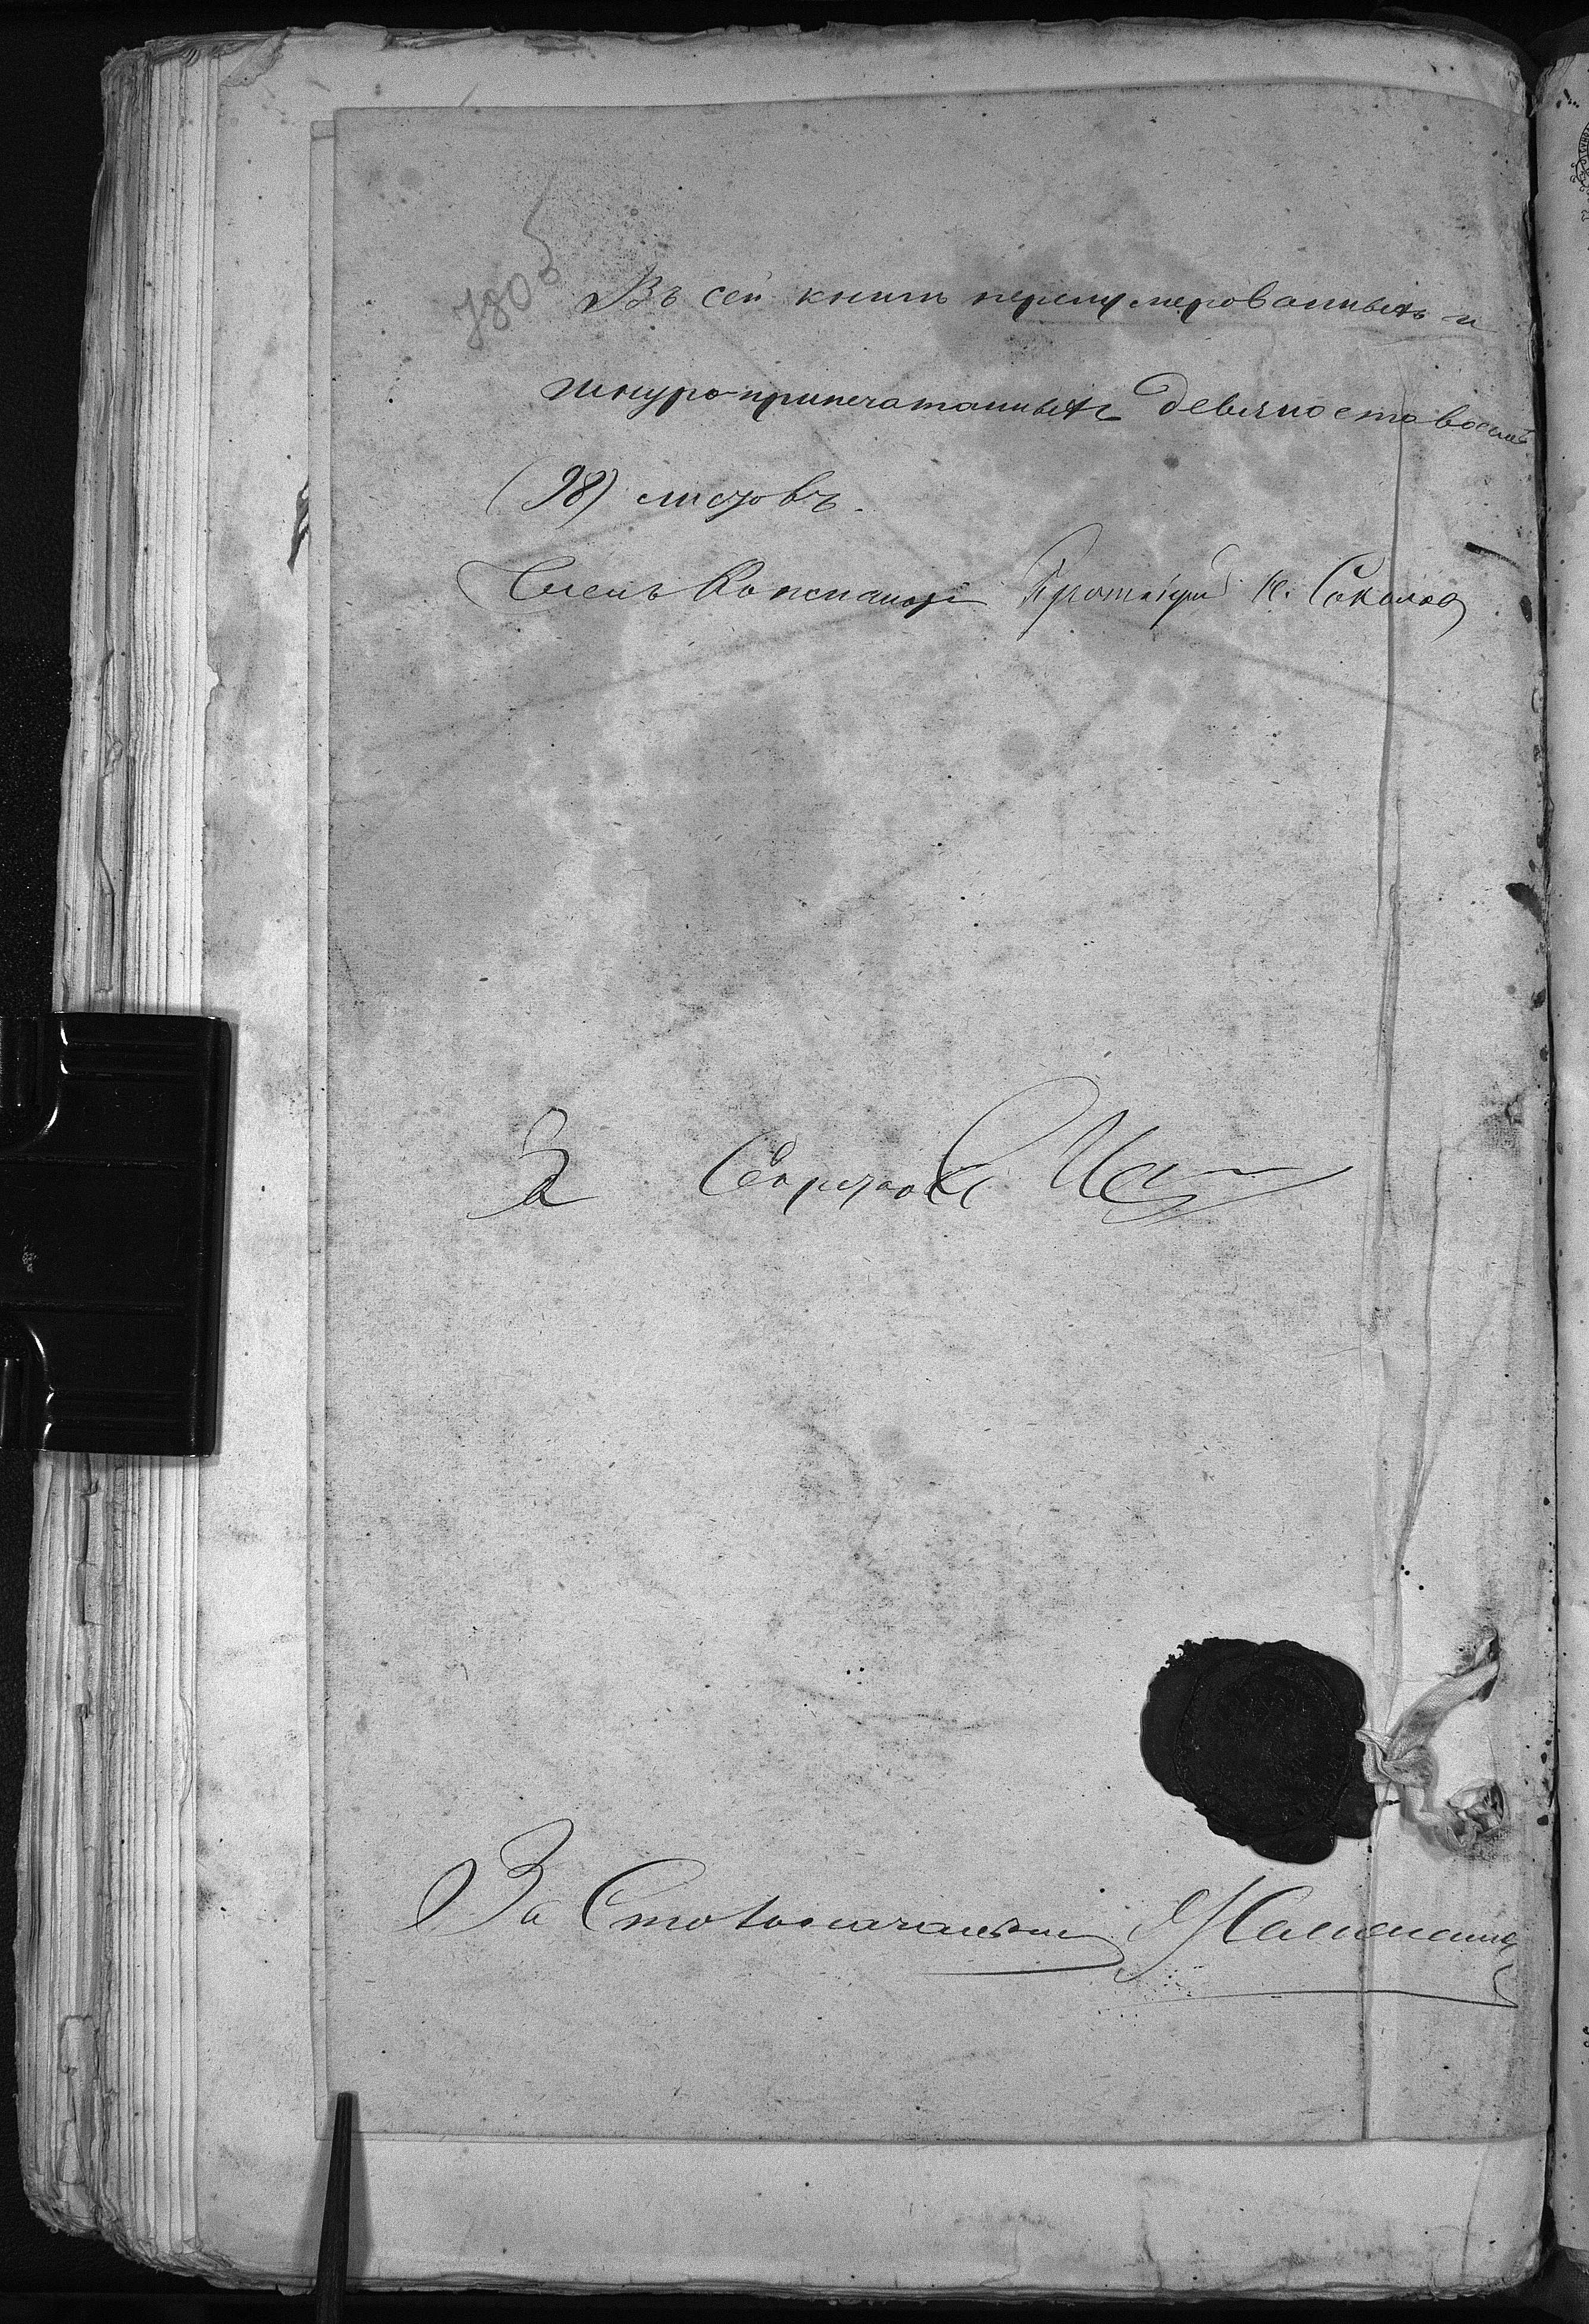 Въ сей книгѣ перенумерованныхъ и
шнуро-припечатанныхъ девяносто восемь
(98) листовъ.
Членъ Консисторіи Протоіерей К. Соколов
За Секретаря
За Столоначальника